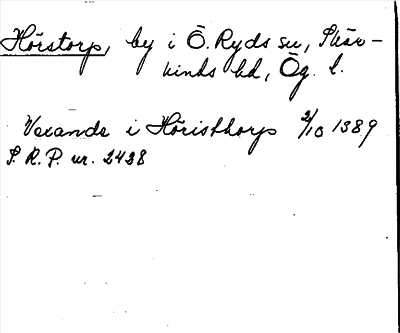 Hörstorp, by i Ö. Ryds sn, Skär-
kinds hd, Ög. l.
Vexande i Höristhorp 2/10 1389
S. R. P. nr. 2428